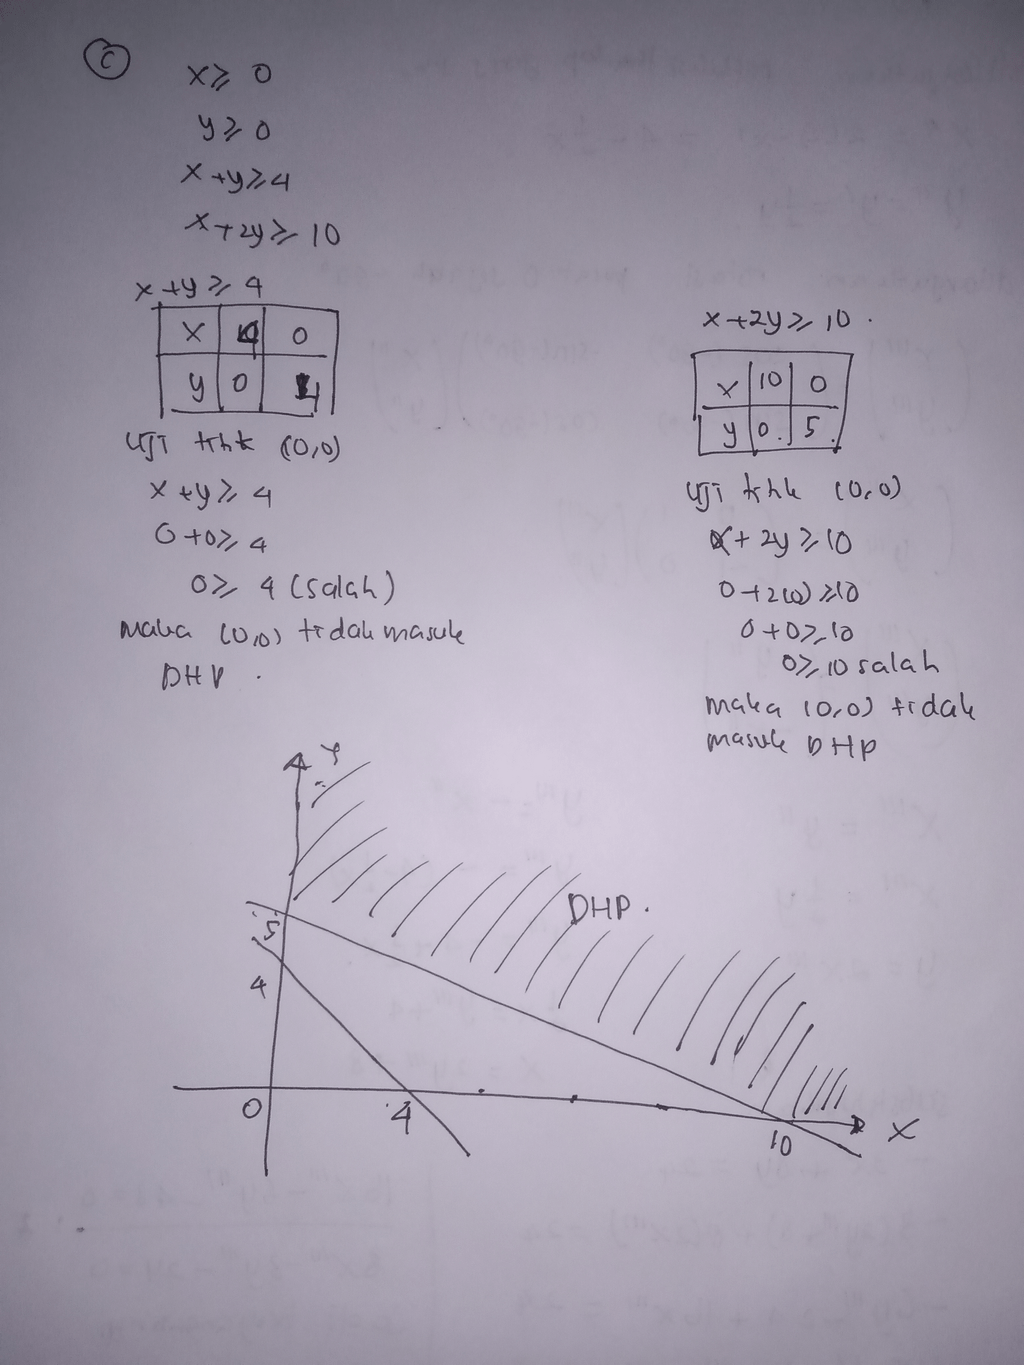 C
x ≥ 0
y ≥ 0
x + y ≥ 4
x + 2y ≥ 10
x + y ≥ 4
x 4 0
y 0 4
Uji ttk (0,0)
x + y ≥ 4
0 + 0 ≥ 4
0 ≥ 4 (salah)
maka (0,0) tidak masuk
DHP.
x + 2y ≥ 10.
x 10 0
y 0. 5.
Uji ttk (0,0)
x + 2y ≥ 10
0 + 2(0) ≥ 10
0 + 0 ≥ 10
0 ≥ 10 salah
maka (0,0) tidak
masuk DHP
Y
DHP.
5
4
0
4
10
X